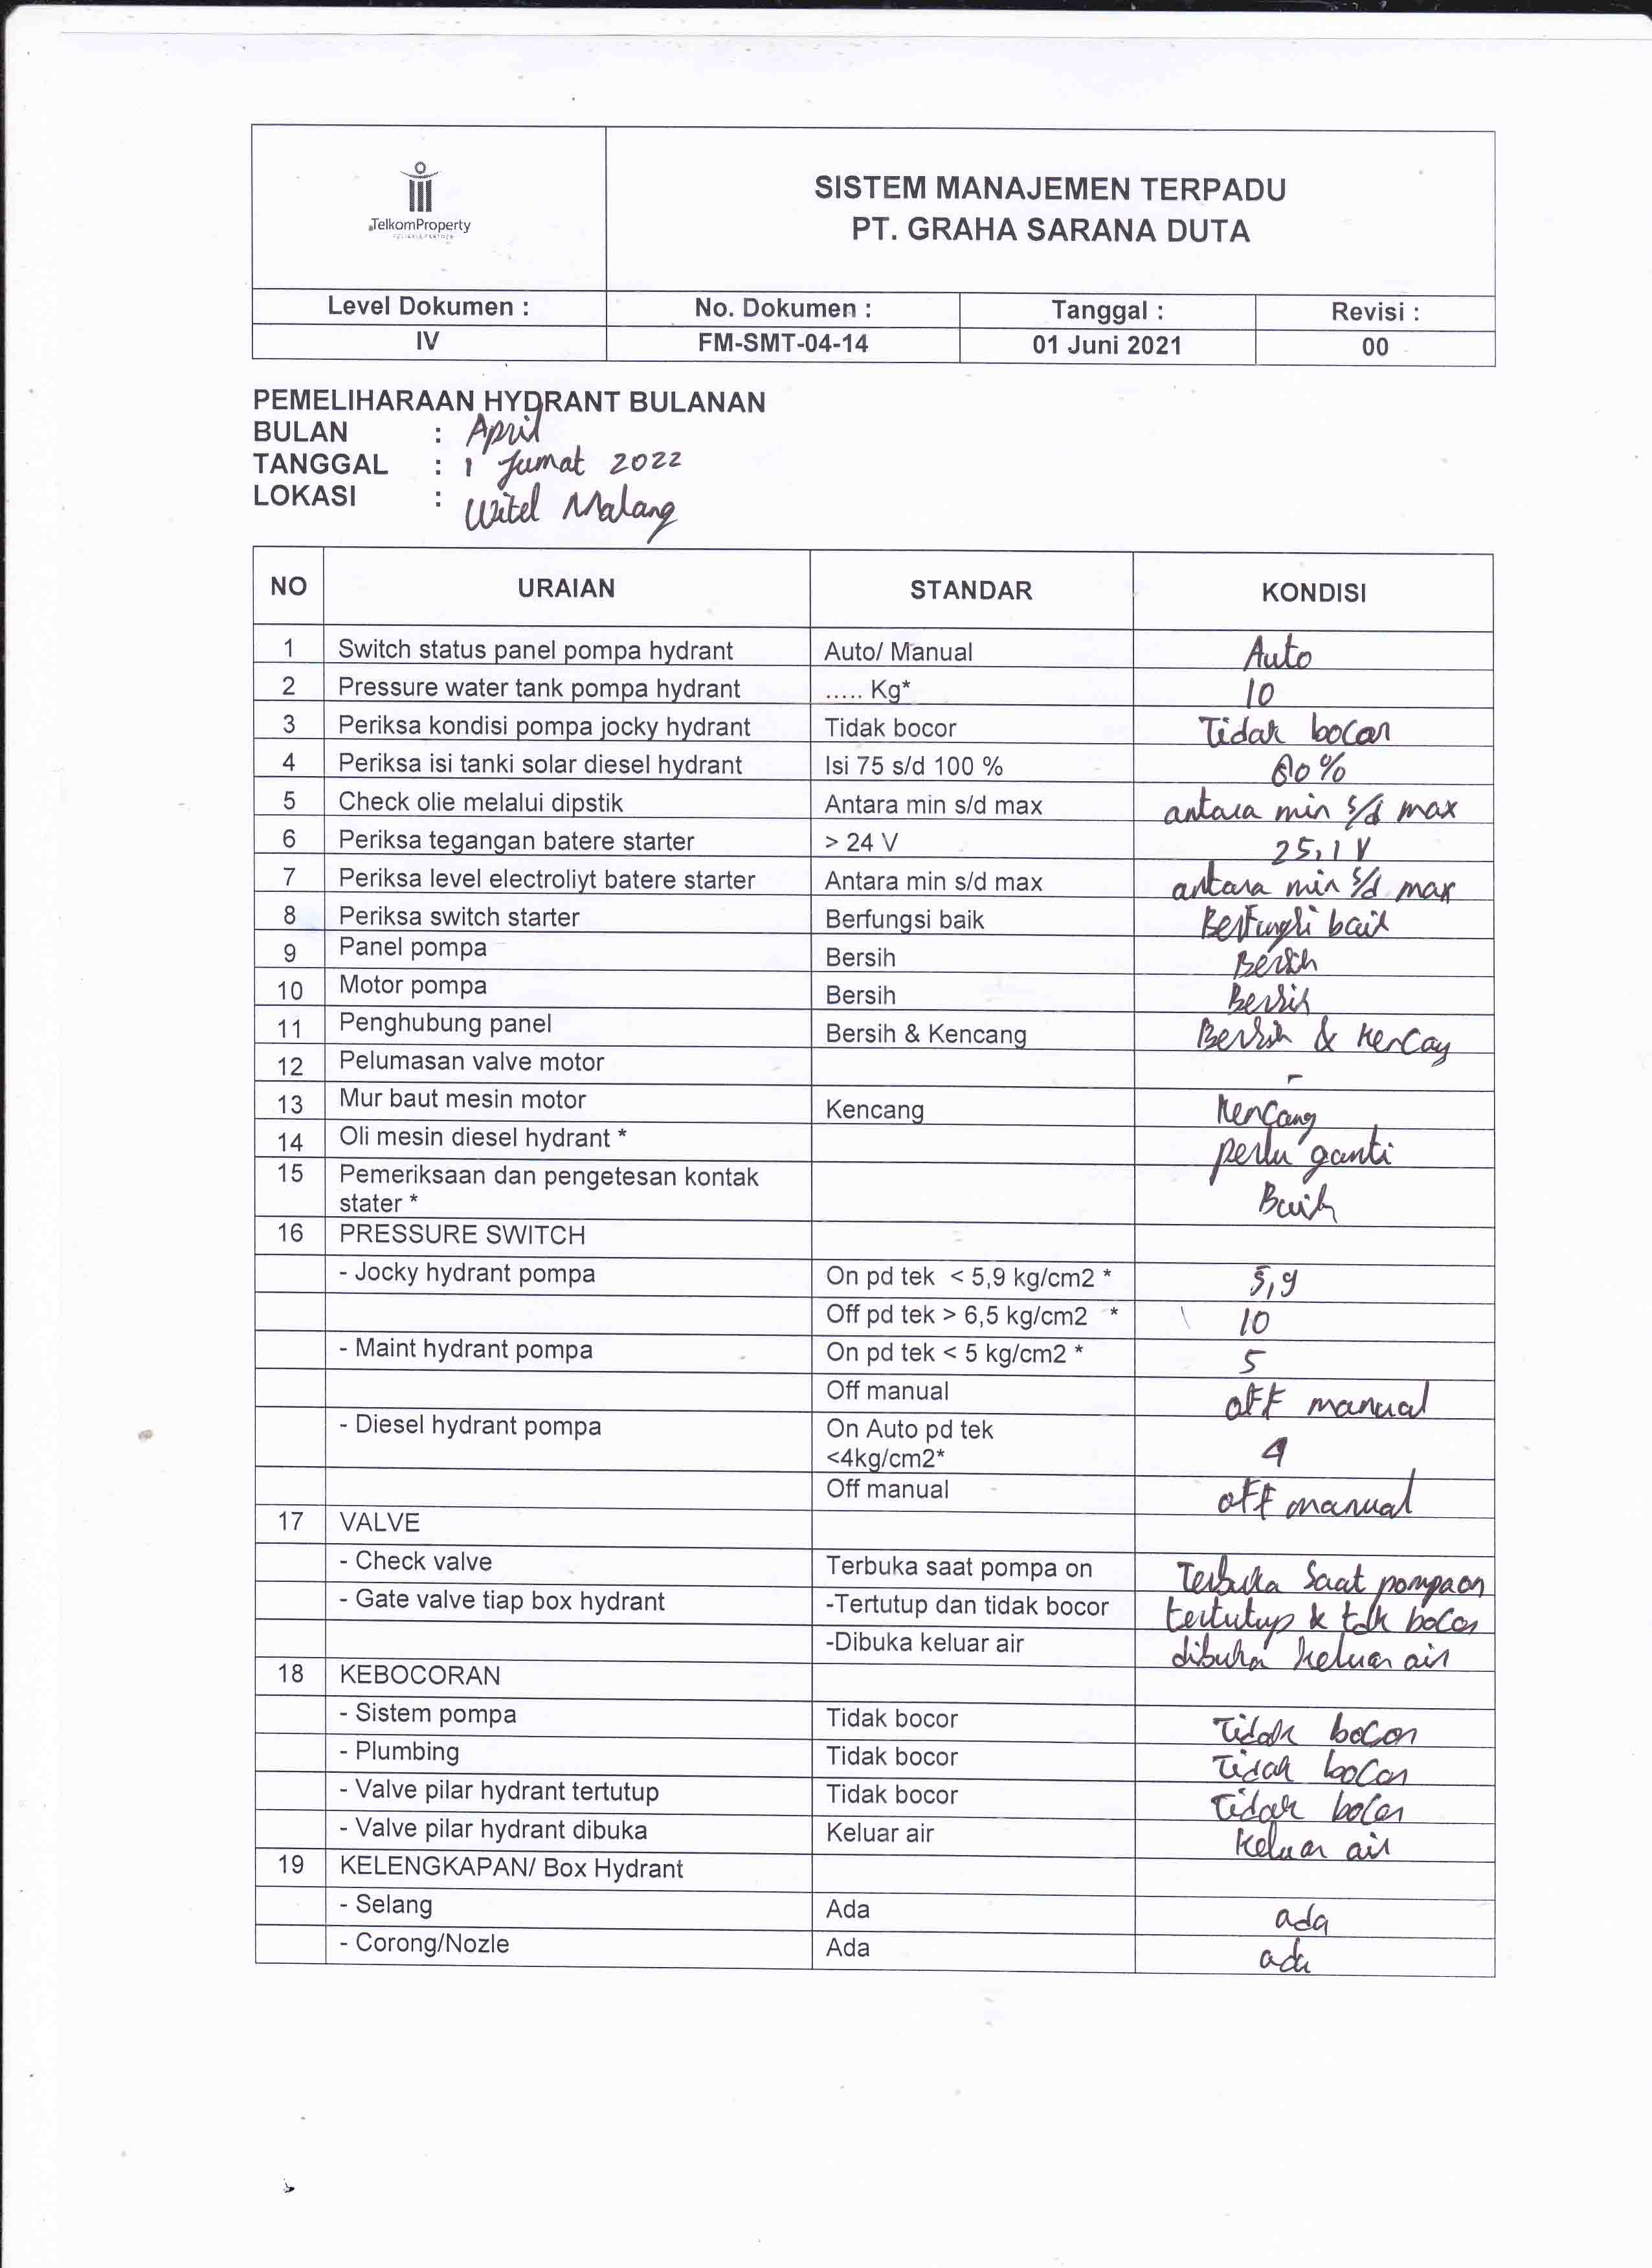 TelkomProperty
SISTEM MANAJEMEN TERPADU
PT. GRAHA SARANA DUTA
Level Dokumen : No. Dokumen : Tanggal : Revisi :
IV FM-SMT-04-14 01 Juni 2021 00
PEMELIHARAAN HYDRANT BULANAN
BULAN : April
TANGGAL : 1 Jumat 2022
LOKASI : Witel Malang
NO URAIAN STANDAR KONDISI
1 Switch status panel pompa hydrant Auto/ Manual Auto
2 Pressure water tank pompa hydrant ..... Kg* 10
3 Periksa kondisi pompa jocky hydrant Tidak bocor Tidak bocor
4 Periksa isi tanki solar diesel hydrant Isi 75 s/d 100 %
5 Check olie melalui dipstik Antara min s/d max antara min s/d max
6 Periksa tegangan batere starter > 24 V 25,1 V
7 Periksa level electroliyt batere starter Antara min s/d max antara min s/d max
8 Periksa switch starter Berfungsi baik Berfungsi baik
9 Panel pompa Bersih Bersih
10 Motor pompa Bersih Bersih
11 Penghubung panel Bersih & Kencang Bersih & Kencag
12 Pelumasan valve motor -
13 Mur baut mesin motor Kencang Kencang
14 Oli mesin diesel hydrant * perlu ganti
15 Pemeriksaan dan pengetesan kontak
stater * Baik
16 PRESSURE SWITCH
- Jocky hydrant pompa On pd tek < 5,9 kg/cm2 * 5,9
Off pd tek > 6,5 kg/cm2 * 10
- Maint hydrant pompa On pd tek < 5 kg/cm2 * 5
Off manual off manual
- Diesel hydrant pompa On Auto pd tek
<4kg/cm2* 4
Off manual off manual
17 VALVE
- Check valve Terbuka saat pompa on Terbuka Saat pompa on
- Gate valve tiap box hydrant -Tertutup dan tidak bocor tertutup & tdk bocor
-Dibuka keluar air dibuka keluar air
18 KEBOCORAN
- Sistem pompa Tidak bocor Tidak bocor
- Plumbing Tidak bocor Tidak bocor
- Valve pilar hydrant tertutup Tidak bocor Tidak bocor
- Valve pilar hydrant dibuka Keluar air Keluar air
19 KELENGKAPAN/ Box Hydrant
- Selang Ada ada
- Corong/Nozle Ada ada